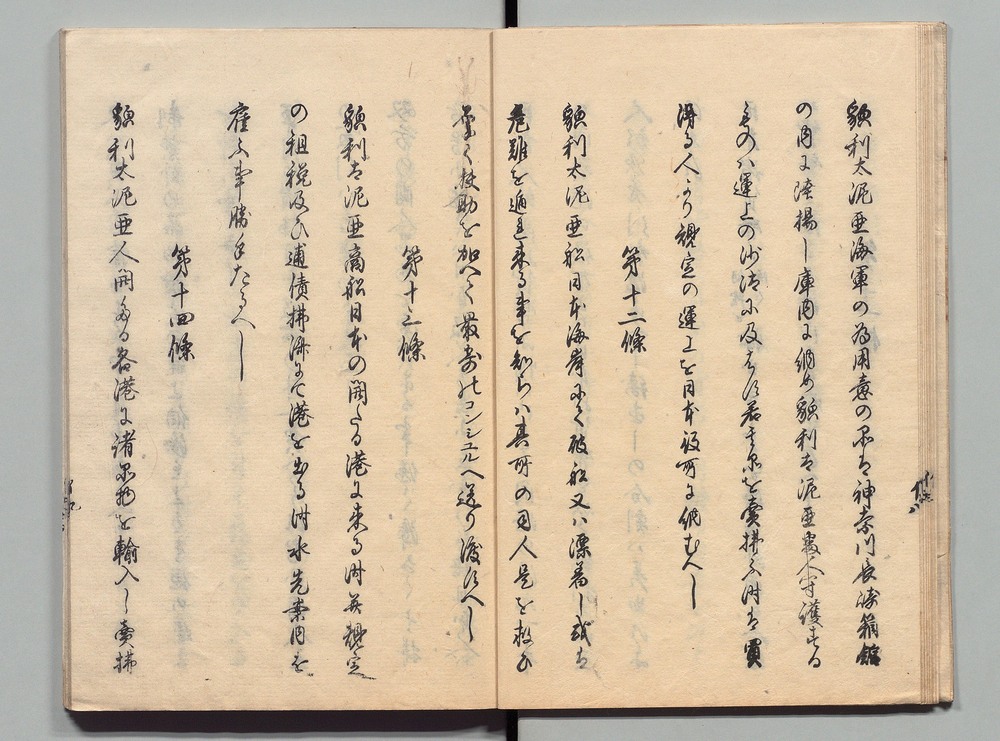 貌利太泥亜海軍の為用意の品は神奈川長崎箱館
の内に陸揚し庫内に納め貌利太泥亜番人守護する
ものハ運上の沙汰に及はす若其品を賣拂ふ時は買
得る人より規定の運上を日本役所に納むへし
第十二條
貌利太泥亜船日本海岸にて破船又ハ漂着し或は
危難を遁れ来る事を知らハ其所の司人是を救ひ
厚く扶助を加へて最寄のコンシュルへ送り渡すへし
第十三條
貌利太泥亜商船日本の開たる港に来る時其規定
の租税及ひ逋債拂済にて港を出る時水先案内を
雇ふ事勝手たるへし
第十四條
貌利太泥亜人開たる各港に諸品物を輸入し賣拂